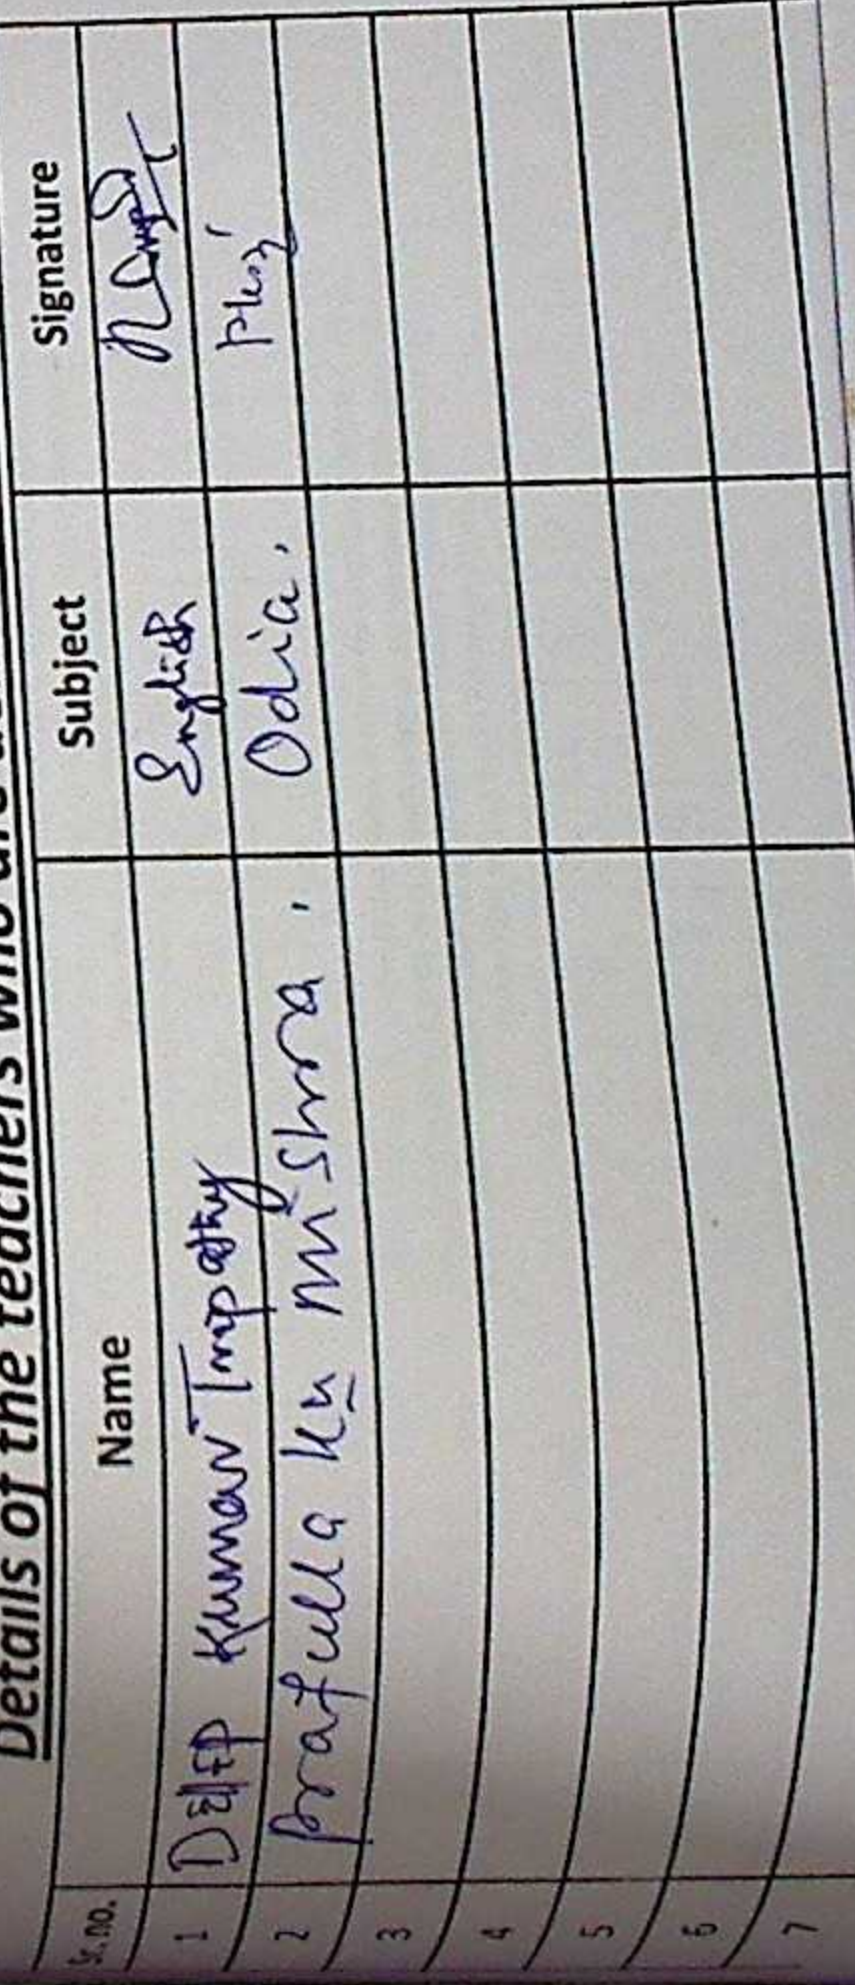 Details of the teachers who are
Sr.no. Name Subject Signature
1 Kumar Tripathy English
2 Prafulla Ku Mishra. Odia.
3
4
5
6
7